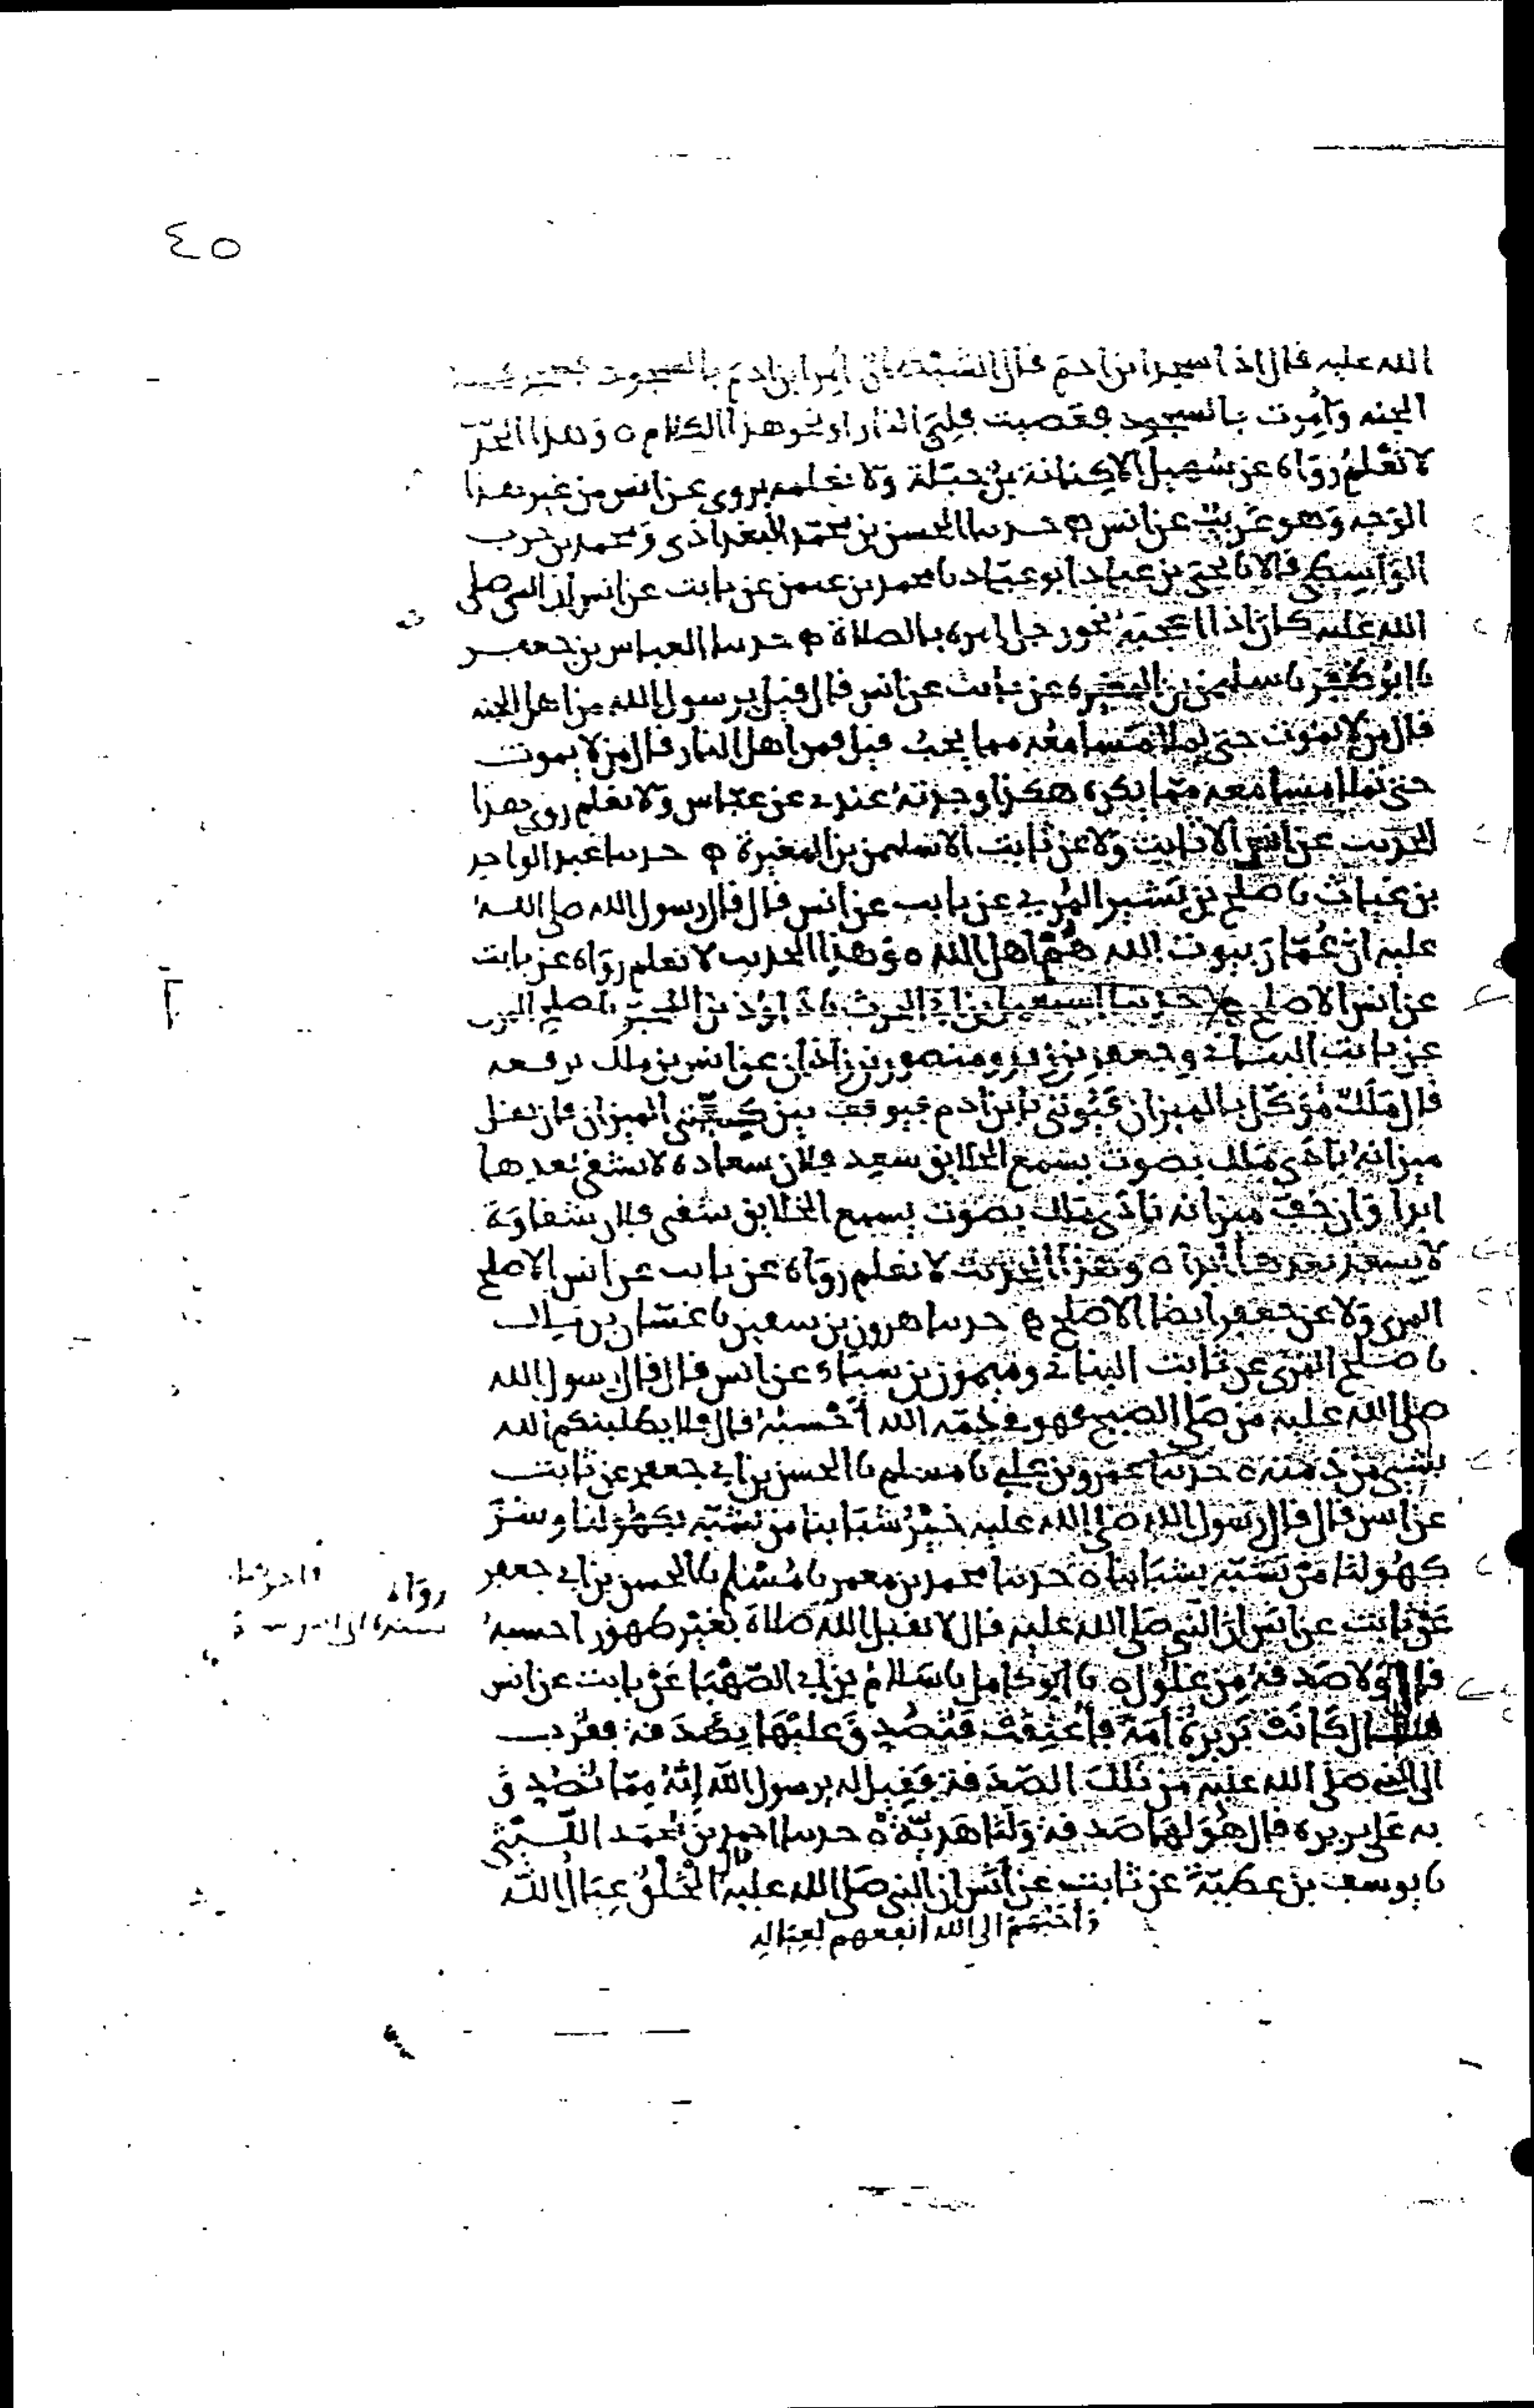 ٤٥
الله عليه قال اذا سجد ابن ادم قال الشيطان أُمِر ابن ادم بالسجود فسجد
الجنه وَأُمِرت بالسجود فعصيت فلِيَ النار او نحو هذا الكلام ٥ وَهذا
لا نَعْلَمُ رَوَاه عن سُهيل الا كِنانة بن جبَلة وَلا نعلمه يروى عن انس من غير هذا
الوَجه وَهو غريبٌ عن انس ٥ حدثنا الحسن بن محمّد البغداذى وَمحمد بن حرب
الوَاسِطى قالا نا يحيَى بن عباد ابو عبّاد نا محمد بن عثمن عن ثابت عن انس ان النبى صلى
الله عليه كان اذا اعجبَهُ نحو رجل امره بالصلاة ٥ حدثنا العباس بن جعفر
نا ابُو ظفر نا سليمن بن المغيره عن ثابت عن انس قال قيل يرسول الله من اهل الجنه
قال من لا يموت حتى تملا مَسامعُه مما يحبُ قيل فمن اهل النار قال من لا يموت
حتى تملا مسامعه ممّا يكره هكذا وجدتهُ عندى عن عبّاس وَلا نعلم روى هذا
الحديث عن انس الا ثابت وَلا عن ثابت الا سليمن بن المغيرة ٥ حدثنا عبد الواحد
بن غياث نا صلح بن بَشير المُرى عن ثابت عن انس قال قال رسول الله صلى الله
عليه انّ عُمّار بيوت الله هُمْ اهل الله ٥ وَهذا الحديث لا نعلم روَاه عن ثابت
عن انس الا صلح ٥ حدثنا اسمعيل بن ابى الحرث نا دَاوُد بن المحبّر نا صلح المرى
عن ثابت البنانى وجعفر بن زيد ومنصور بن زاذان عن انس بن ملك يرفعه
قال مَلَك مُوَكل بالميزان فيُوتى بابن ادم فيوقف بين كِفّتى الميزان فان ثقل
ميزانهُ نادَى مَلك بصَوت يسمع الخلايق سعِد فلان سعاده لا يشقى بعدها
ابدا وَان خف ميزانه نادَى ملك بصَوت يسمع الخلايق شقى فلان شقاوَة
لا يسعد بعدها ابدا ٥ وَهذا الحديث لا نعلم روَاه عن ثابت عن انس الا صلح
المرى وَلا عن جعفر ايضا الا صَلح ٥ حدثنا هرون بن سفين نا غسّان بن ملك
نا صَلح المرى عن ثابت البنانى وميمون بن سياه عن انس قال قال رسول الله
صلى الله عليه من صَلى الصبح فهو فى ذمّه الله أحْسبهُ قال فلا يطلبنكم الله
بشى من ذمته ٥ حدثنا عمرو بن على نا مسلم نا الحسن بن ابى جعفر عن ثابت
عن انس قال قال رَسول الله صَلى الله عليه خيْرُ شبَابنا من تشبّه بكهُولنا وشرّ
كهُولنا من تشبّه بشبَابنا ٥ حدثنا محمد بن معمر نا مُسْلم نا الحسن بن ابى جعفر
رواه
عَنْ ثابت عن انس ان النبى صَلى الله عليه قال لا تقبل الله صَلاة بغَيْر طهُور احسبهُ
قال وَلا صَدقهً مِن غلول ٥ نا ابو كامل نا سَلامُ بن ابى الصّهْبَا عَنْ ثابت عن انس
قال كانَتْ بَريرةُ امَةً فأُعتِقَتْ فَتُصُدِّقَ عليْهَا بِصَدقة فقرّبت
الى النبى صَلى الله عليه من تلكَ الصّدقة فقِيل له يرسول الله إِنّهُ مِمّا تُصُدِّق
به عَلى بريره قال هُوَ لها صَدقة وَلَنا هَديّةٌ ٥ حدثنا احمد بن مُحمّد اللّيثى
نا يوسف بن عطيّة عن ثابت عن أنَس ان النبى صَلى الله عليه قال الْخَلْقُ عِيَالُ الله
وَأَحَبُّهُمْ الى الله انفعهم لعِيَالِه